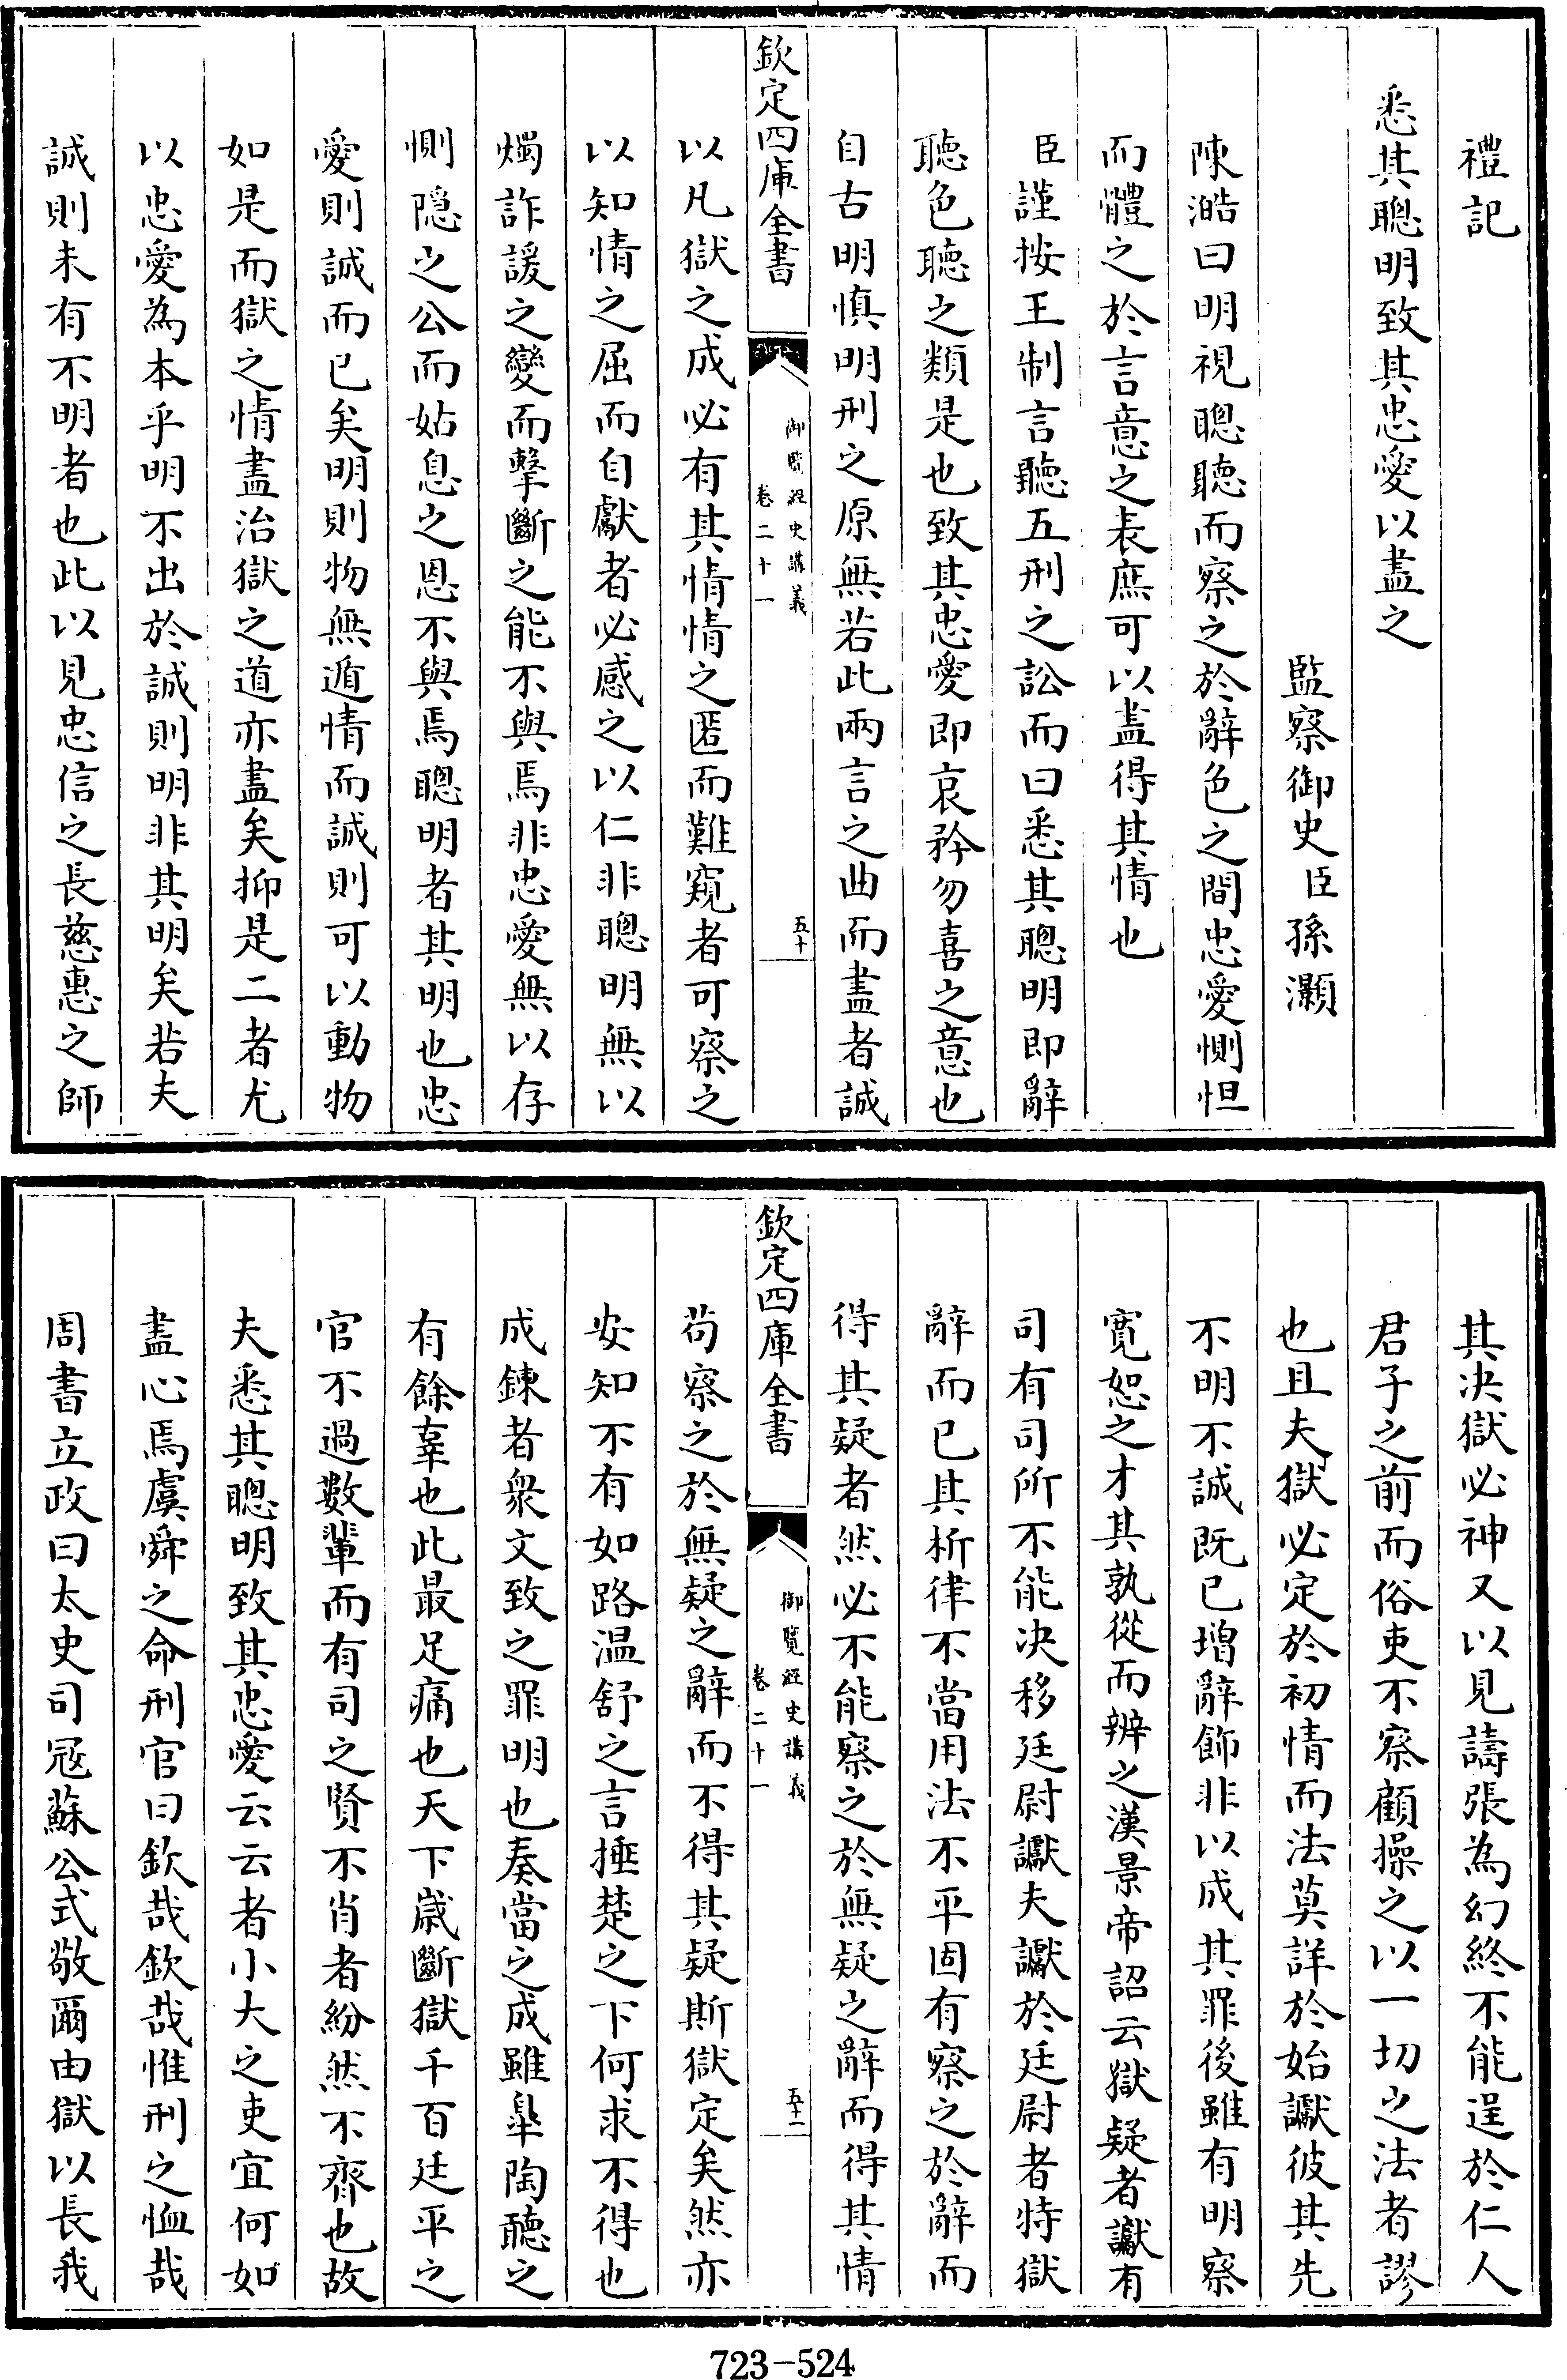 禮記
悉其聰明致其忠愛以盡之
監察御史臣孫灝
陳澔曰明視聰聽而察之於辭色之間忠愛惻怛
而體之於言意之表庶可以盡得其情也
臣謹按王制言聽五刑之訟而曰悉其聰明即辭
聽色聽之類是也致其忠愛即哀矜勿喜之意也
自古明慎明刑之原無若此兩言之曲而盡者誠
欽定四庫全書
御覽經史講義
卷二十一
五十
以凡獄之成必有其情情之匿而難窺者可察之
以知情之屈而自獻者必感之以仁非聰明無以
燭詐諼之變而擊斷之能不與焉非忠愛無以存
惻隱之公而姑息之恩不與焉聰明者其明也忠
愛則誠而已矣明則物無遁情而誠則可以動物
如是而獄之情盡治獄之道亦盡矣抑是二者尤
以忠愛為本乎明不出於誠則明非其明矣若夫
誠則未有不明者也此以見忠信之長慈惠之師
其决獄必神又以見譸張為幻終不能逞於仁人
君子之前而俗吏不察顧操之以一切之法者謬
也且夫獄必定於初情而法莫詳於始讞彼其先
不明不誠既已增辭飾非以成其罪後雖有明察
寛恕之才其孰從而辨之漢景帝詔云獄疑者讞有
司有司所不能决移廷尉讞夫讞於廷尉者特獄
辭而已其析律不當用法不平固有察之於辭而
得其疑者然必不能察之於無疑之辭而得其情
欽定四庫全書
御覽經史講義
卷二十一
五十一
苟察之於無疑之辭而不得其疑斯獄定矣然亦
安知不有如路温舒之言捶楚之下何求不得也
成鍊者衆文致之罪明也奏當之成雖臯陶聽之
有餘辜也此最足痛也天下歲斷獄千百廷平之
官不過數輩而有司之賢不肖者紛然不齊也故
夫悉其聰明致其忠愛云云者小大之吏宜何如
盡心焉虞舜之命刑官曰欽哉欽哉惟刑之恤哉
周書立政曰太史司冦蘇公式敬爾由獄以長我
723-524